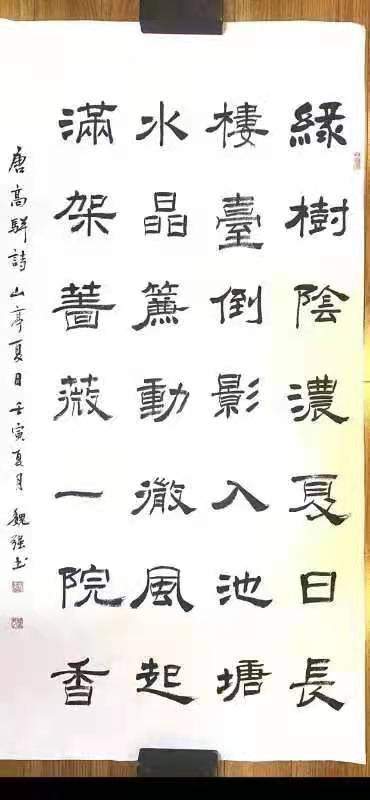 緑樹陰濃夏日長
樓臺倒影入池塘
水晶簾動微風起
滿架薔薇一院香
唐高駢詩 山亭夏日 壬寅夏月 魏强书